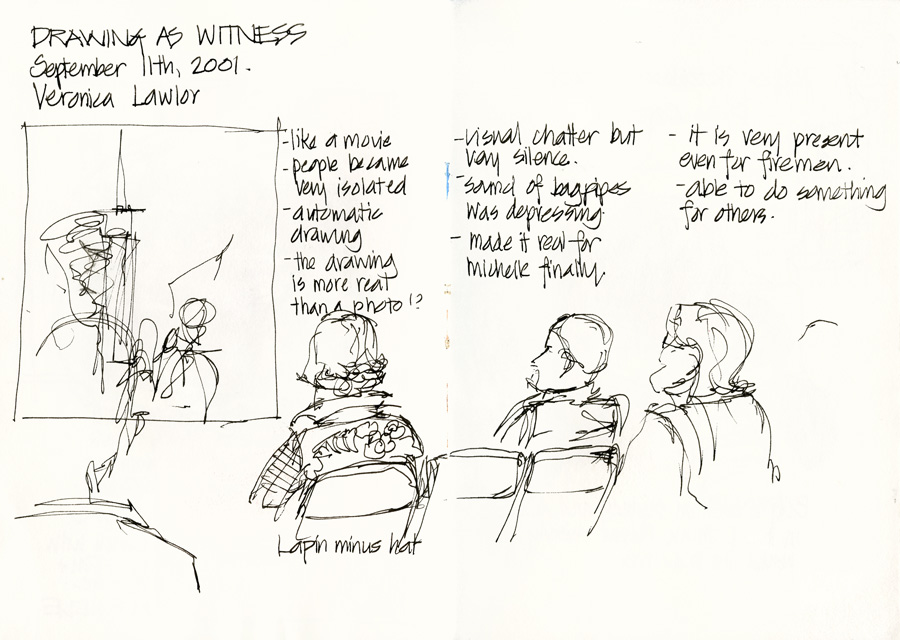 DRAWING AS WITNESS
September 11th, 2001.
Veronica Lawlor
-like a movie
-people became
very isolated
-automatic
drawing
-the drawing
is more real
than a photo!?
-visual chatter but
very silence.
-sound of bagpipes
was depressing.
- made it real for
michelle finally.
- it is very present
even for firemen.
-able to do something
for others.
Lapin minus hat